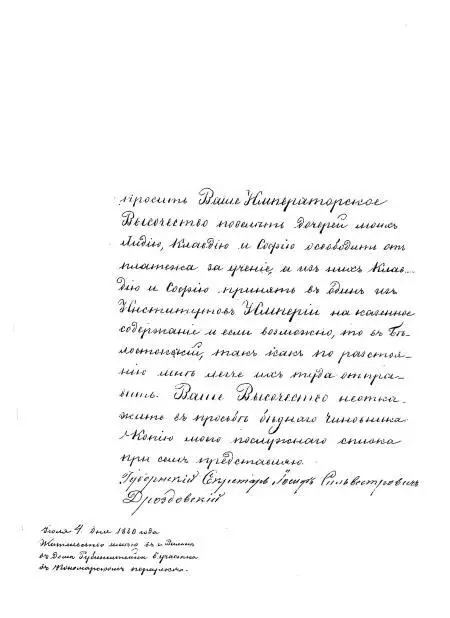 просить Ваше Императорское
Высочество повелить дочерей моихъ
Лидію, Клавдію и Софію освободить отъ
платежа за ученіе, и изъ нихъ Клав-
дію и Софію принять въ одинъ изъ
Институтовъ Имперіи на казенное
содержаніе и если возможно, то въ Бѣ-
лостокскій, такъ какъ по разстоя-
нію мнѣ легче ихъ туда отпра-
вить. Ваше Высочество неотка-
жите въ просьбѣ бѣднаго чиновника
Копію моего послужнаго списка
при семъ представляю.
Губернскій Секретарь Іосифъ Сильвестровичъ
Дроздовскій
Іюля 4 дня 1880 года
Жительство имѣю въ г. Вильнѣ
въ домѣ Рубинштейна участка
въ Пономарскомъ переулкѣ.